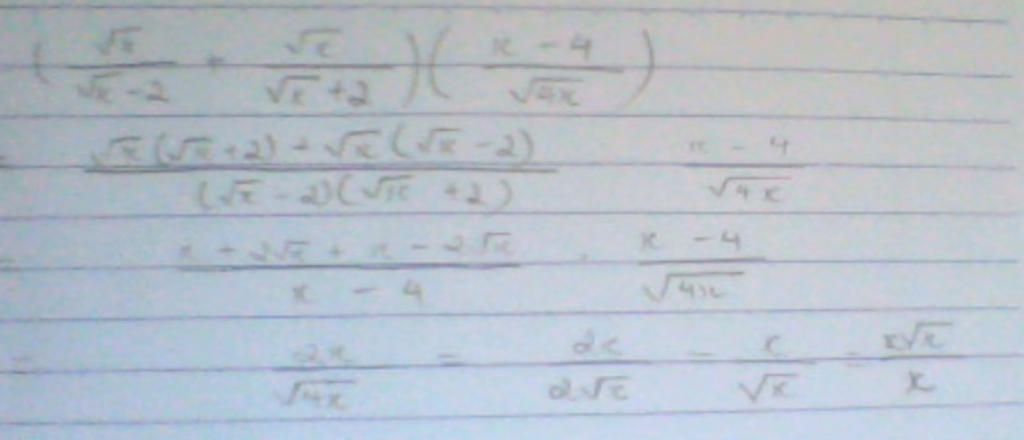 (√x/(√x - 2) + √x/(√x + 2)) ((x - 4)/√4x)
= (√x(√x + 2) + √x(√x - 2))/((√x - 2)(√x + 2)) (x - 4)/√4x
= (x + 2√x + x - 2√x)/(x - 4) · (x - 4)/√4x
= 2x/√4x = 2x/2√x = x/√x = x√x/x